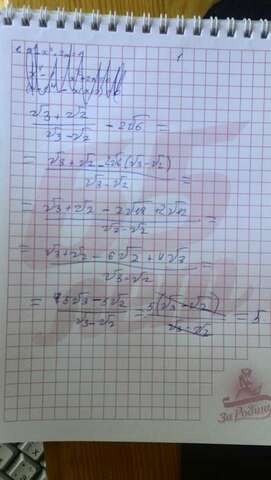 (√3 + √2)/(√3 - √2) - 2√6 =
= (√3 + √2 - 2√6(√3 - √2))/(√3 - √2) =
= (√3 + √2 - 2√18 + 2√12)/(√3 - √2) =
= (√3 + √2 - 6√2 + 4√3)/(√3 - √2) =
= (5√3 - 5√2)/(√3 - √2) = 5(√3 - √2)/(√3 - √2) = 5
За Родину